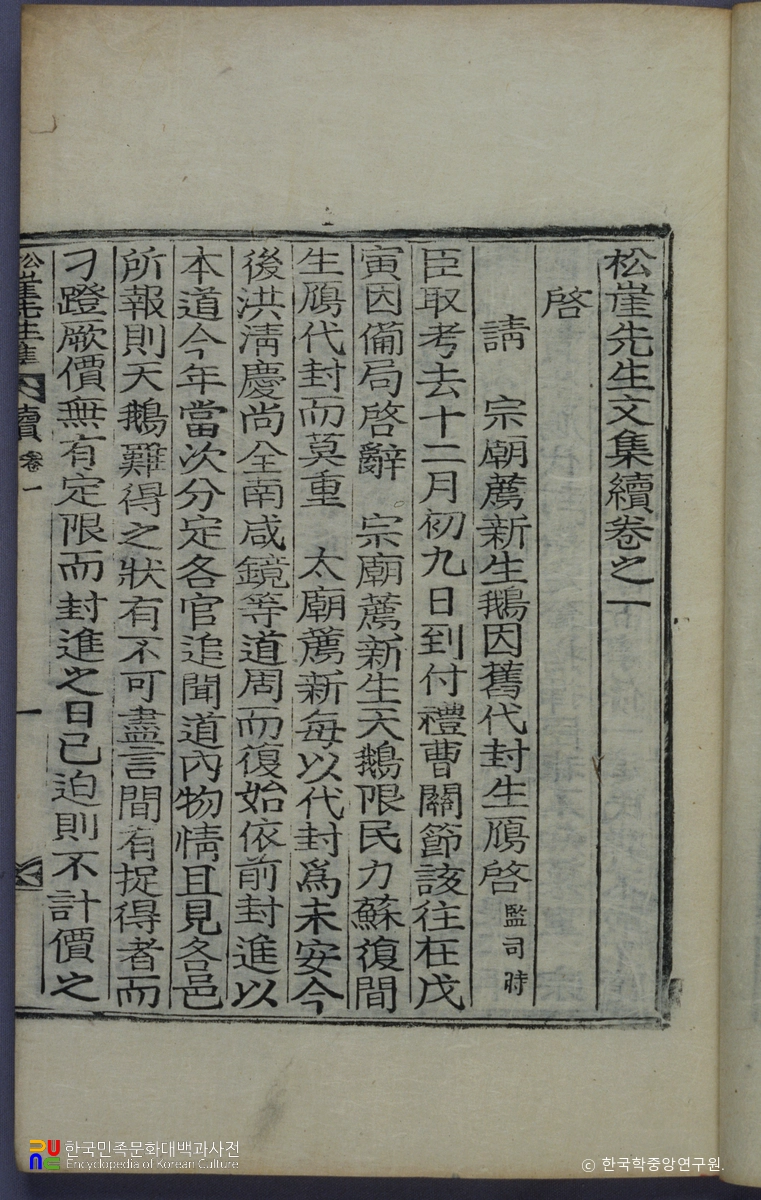 松崖先生文集續卷之一
啓
請 宗廟薦新生鵝因舊代封生鴈啓 監司時
臣取考去十二月初九日到付禮曹關節該往在戊
寅因備局啓辭 宗廟薦新生天鵝限民力蘇復間
生鴈代封而莫重 太廟薦新每以代封爲未安今
後洪淸慶尚全南咸鏡等道周而復始依前封進以
本道今年當次分定各官追聞道內物情且見各邑
所報則天鵝難得之狀有不可盡言間有捉得者而
刁蹬厥價無有定限而封進之日已迫則不計價之
松崖先生集 續 卷一 一
한국민족문화대백과사전
Encyclopedia of Korean Culture
© 한국학중앙연구원.